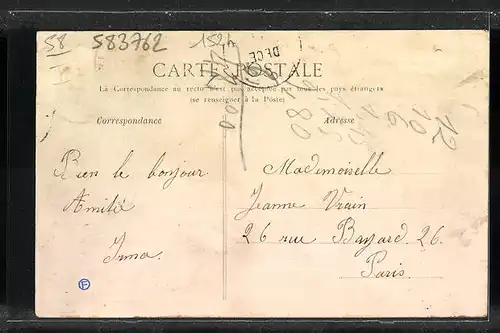 58 583762 152
DECE
CARTE POSTALE
La Correspondance au recto n'est pas acceptée par tous les pays étrangers
(se renseigner à la Poste)
Correspondance
Adresse
Bien le bonjour
Amitié
Irma.
Mademoiselle
Jeanne Vrain
26 rue Bayard. 26.
Paris.
F